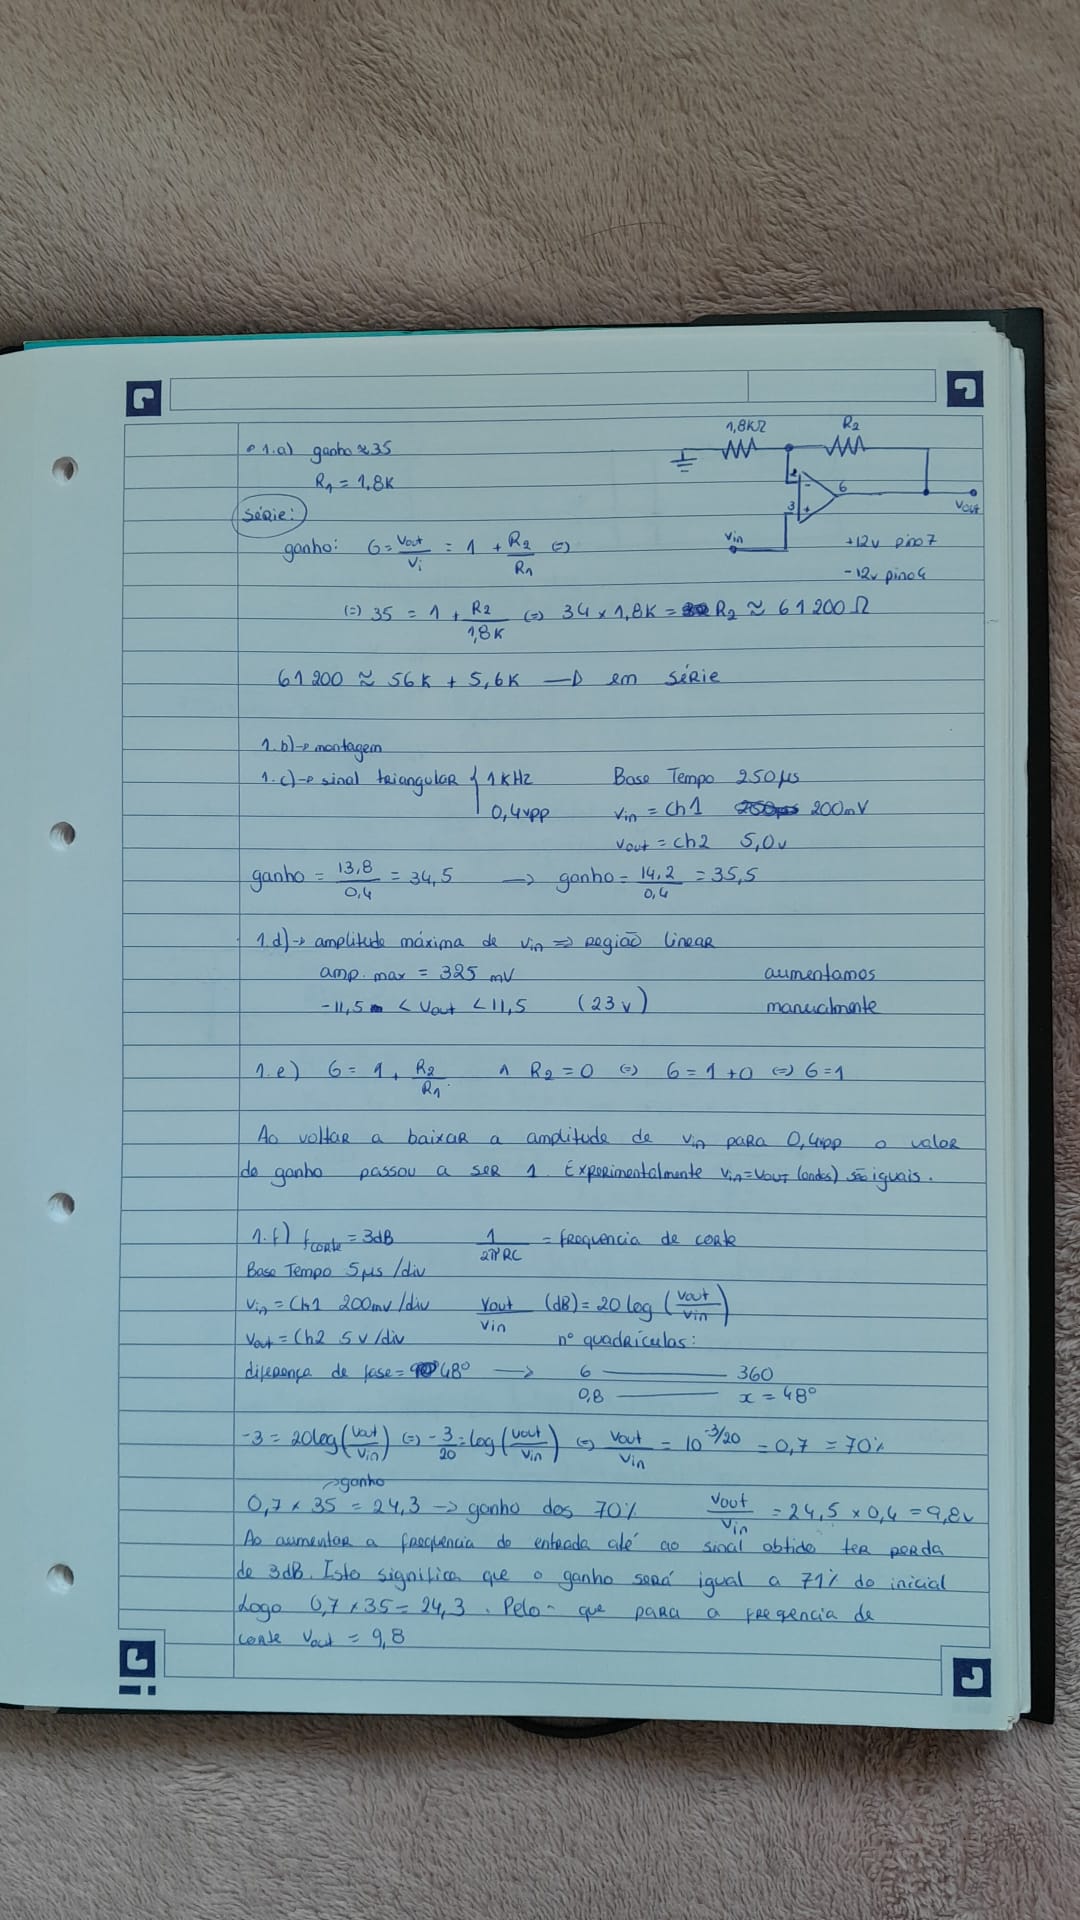 1.a) ganho ≈ 35
R1 = 1,8K
1,8KΩ R2
2 - 3 + 6
Vin Vout
+12v pino 7
-12v pino 4
Série:
ganho: G = Vout/Vi = 1 + R2/R1 (=)
(=) 35 = 1 + R2/1,8K (=) 34 x 1,8K = R2 ≈ 61200 Ω
61200 ≈ 56K + 5,6K → em série
1.b) → montagem
1.c) → sinal triangular { 1KHz Base Tempo 250μs
0,4vpp Vin = Ch1 200mV
Vout = Ch2 5,0v
ganho = 13,8/0,4 = 34,5 → ganho = 14,2/0,4 = 35,5
1.d) → amplitude máxima de Vin => região linear
amp. max = 325 mV aumentamos
-11,5 < Vout < 11,5 (23v) manualmente
1.e) G = 1 + R2/R1 ∧ R2 = 0 (=) G = 1 + 0 (=) G = 1
Ao voltar a baixar a amplitude de Vin para 0,4vpp o valor
do ganho passou a ser 1. Experimentalmente Vin = Vout (ondas) são iguais.
1.f) fcorte = 3dB 1/2πRC = frequencia de corte
Base Tempo 5μs/div
Vin = Ch1 200mv/div Vout/Vin (dB) = 20 log (Vout/Vin)
Vout = Ch2 5v/div nº quadrículas:
diferença de fase = 48° → 6 — 360
0,8 — x = 48°
-3 = 20log(Vout/Vin) (=) -3/20 = log(Vout/Vin) (=) Vout/Vin = 10^-3/20 = 0,7 = 70%
→ganho
0,7 x 35 = 24,3 → ganho dos 70% Vout/Vin = 24,5 x 0,4 = 9,8v
Ao aumentar a frequencia de entrada até ao sinal obtido ter perda
de 3dB. Isto significa que o ganho será igual a 71% do inicial
Logo 0,7 x 35 = 24,3. Pelo - que para a freqencia de
corte Vout = 9,8